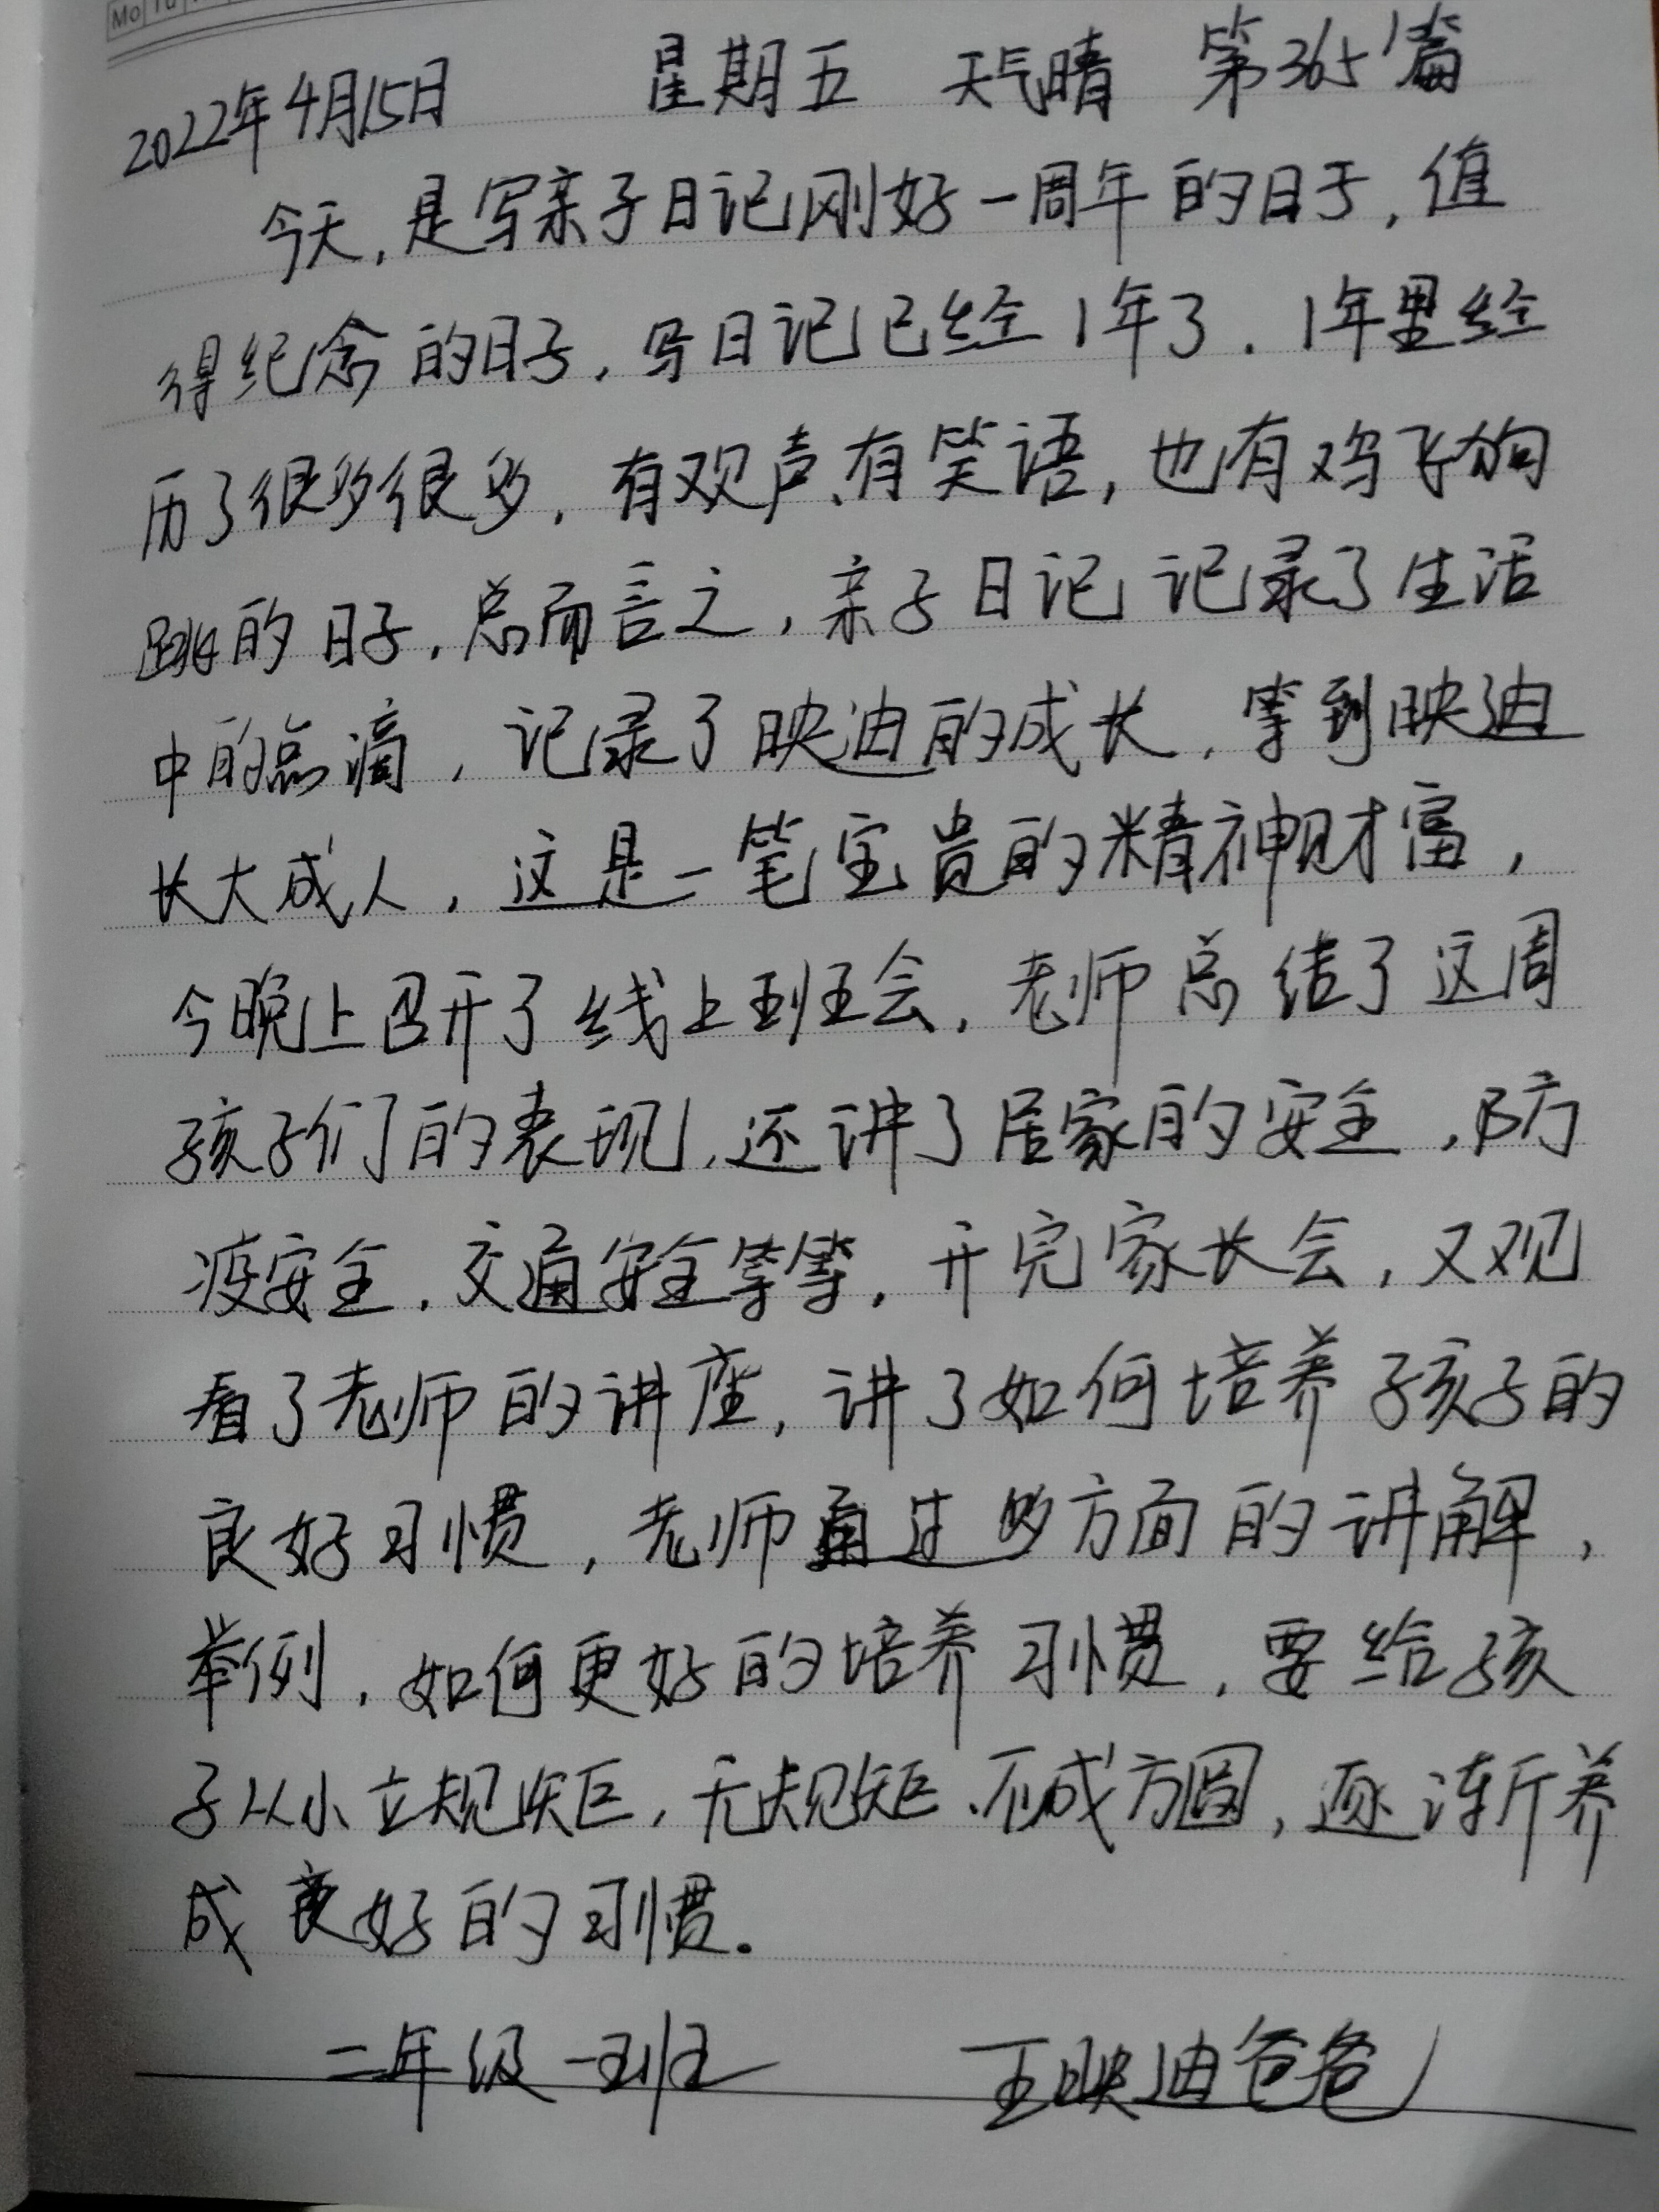 Mo Tu
2022年4月15日 星期五 天气晴 第365篇
今天,是写亲子日记刚好一周年的日子,值
得纪念的日子,写日记已经1年了.1年里经
历了很多很多,有欢声、有笑语,也有鸡飞狗
跳的日子,总而言之,亲子日记记录了生活
中的点滴,记录了映迪的成长,等到映迪
长大成人,这是一笔宝贵的精神财富,
今晚上召开了线上班会,老师总结了这周
孩子们的表现,还讲了居家的安全,防
疫安全,交通安全等等,开完家长会,又观
看了老师的讲座,讲了如何培养孩子的
良好习惯,老师通过多方面的讲解,
举例,如何更好的培养习惯,要给孩
子从小立规矩,无规矩、不成方圆,逐渐养
成良好的习惯.
二年级一班 王映迪爸爸